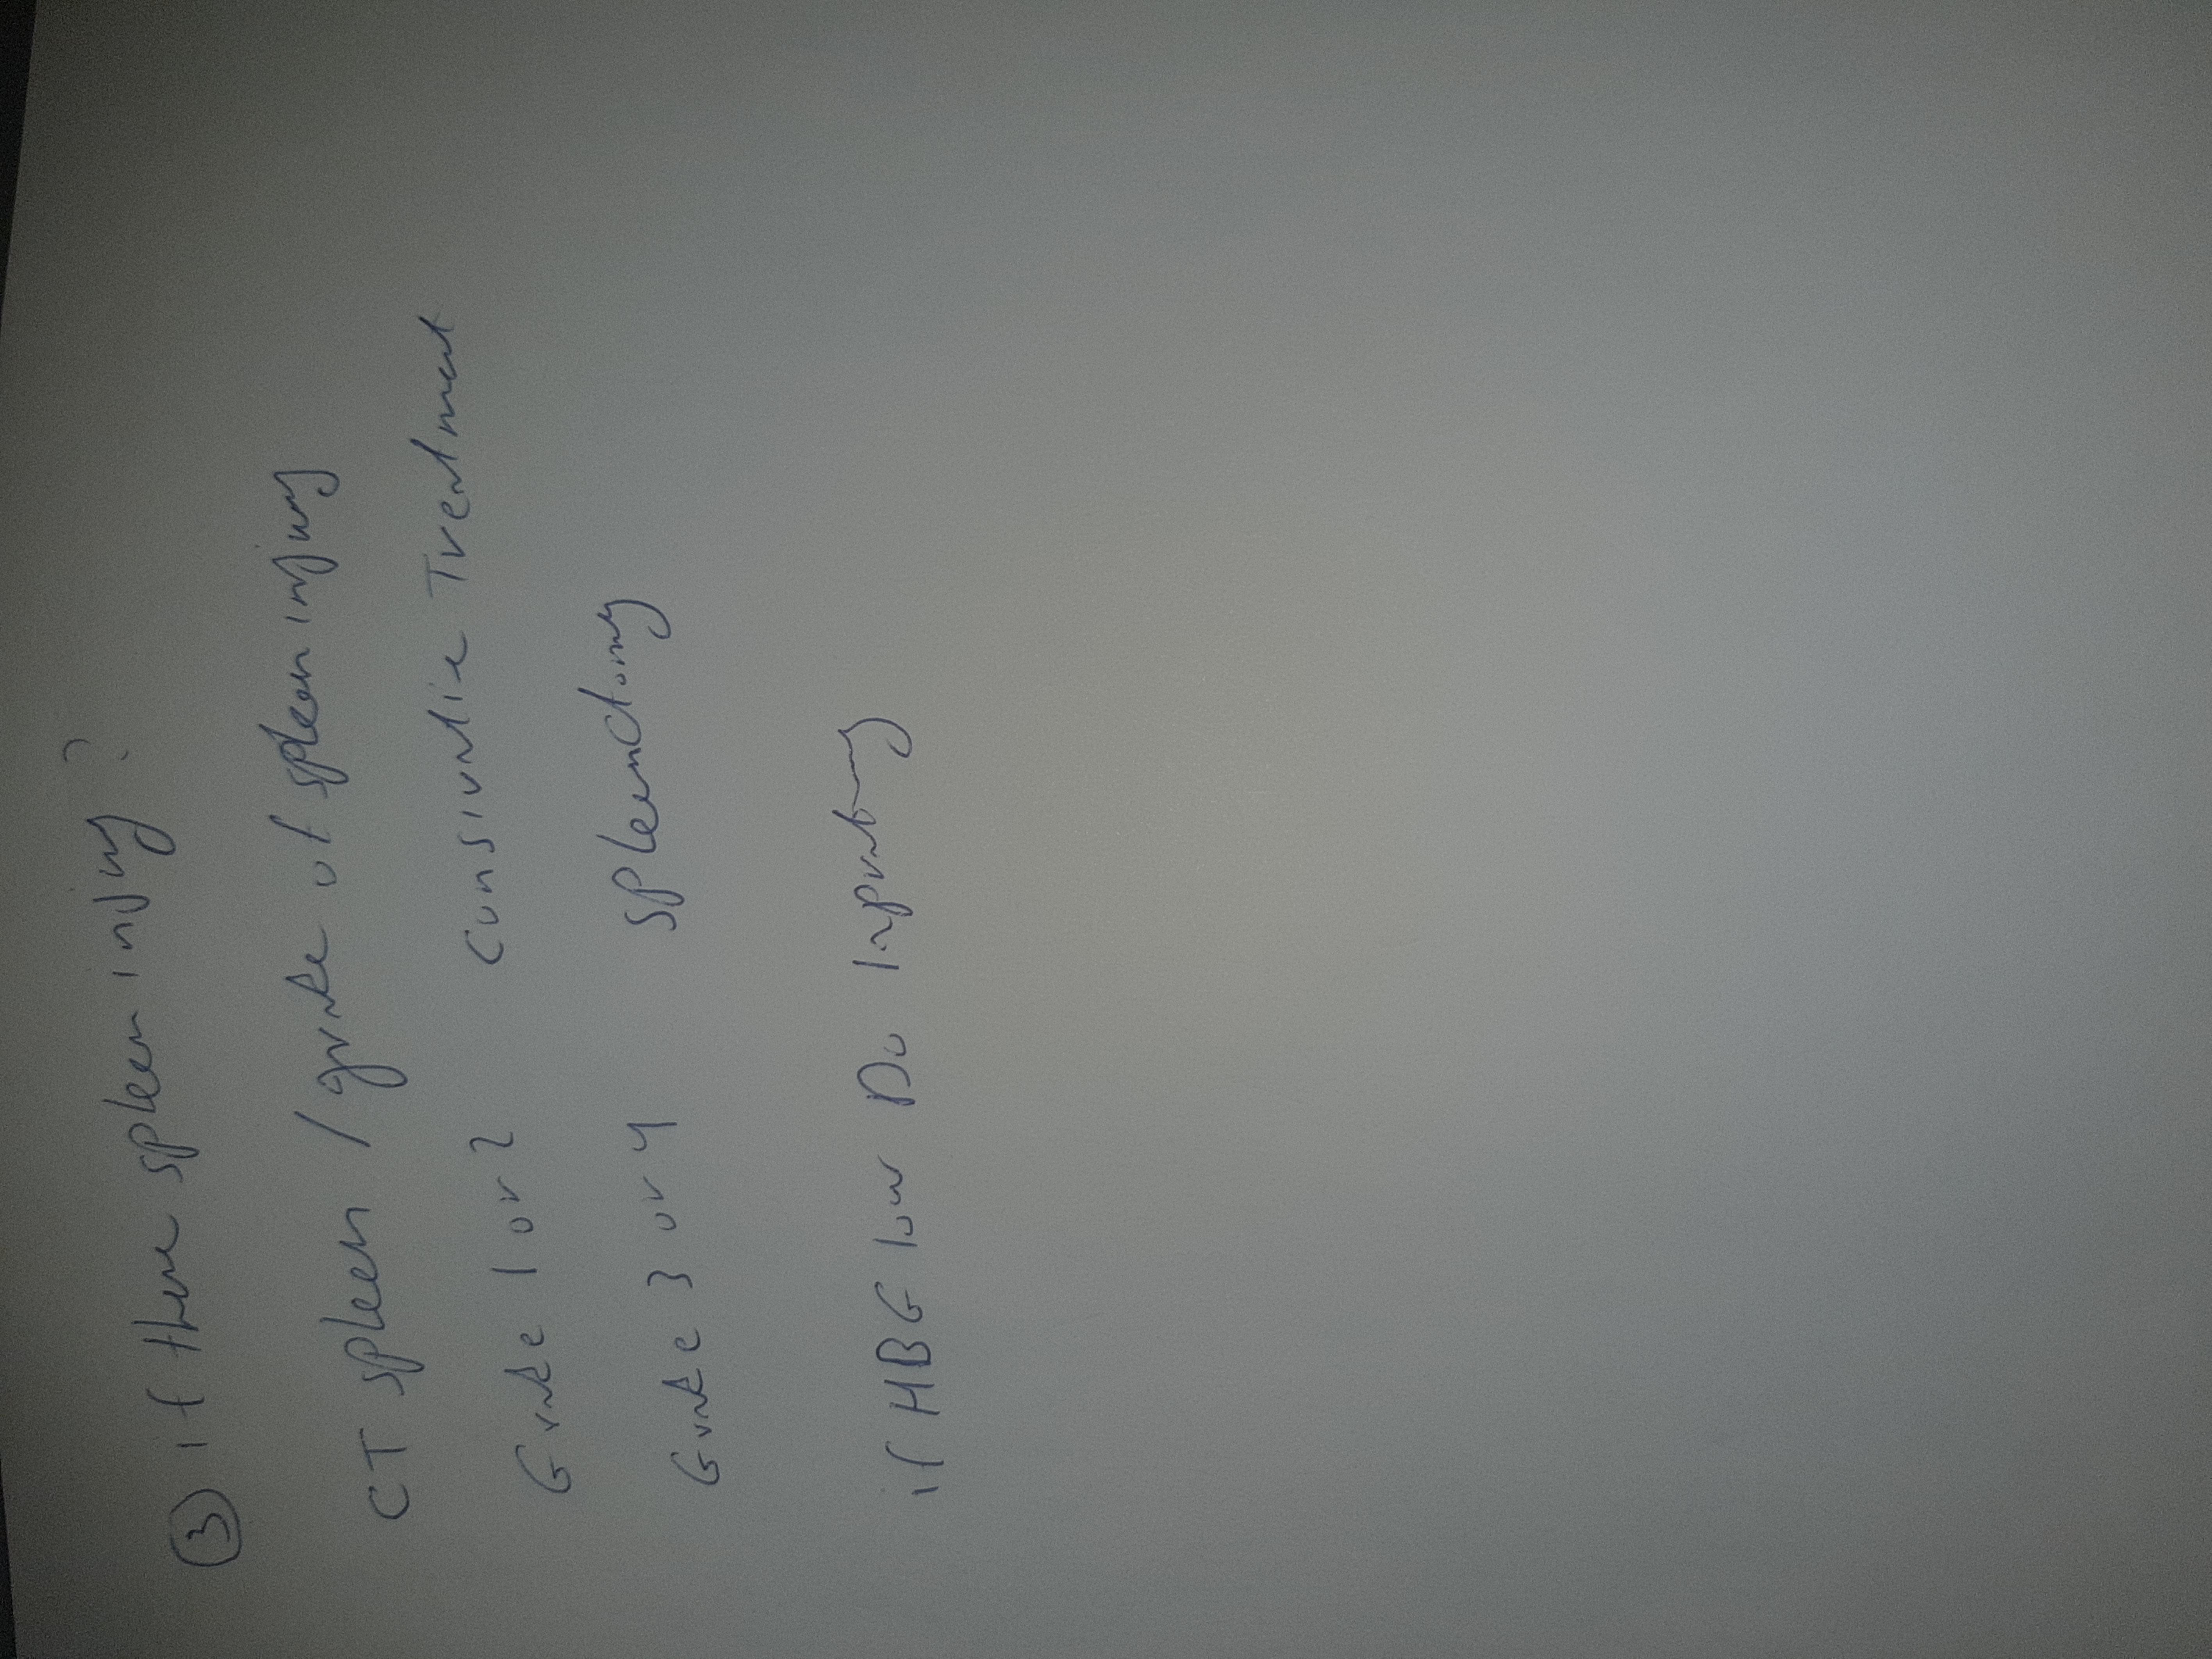 ③ if there spleen injury?
CT spleen / grade of spleen injury
Grade 1 or 2 Consirvatie Treatment
Grade 3 or 4 spleenctomy
if HBG low Do